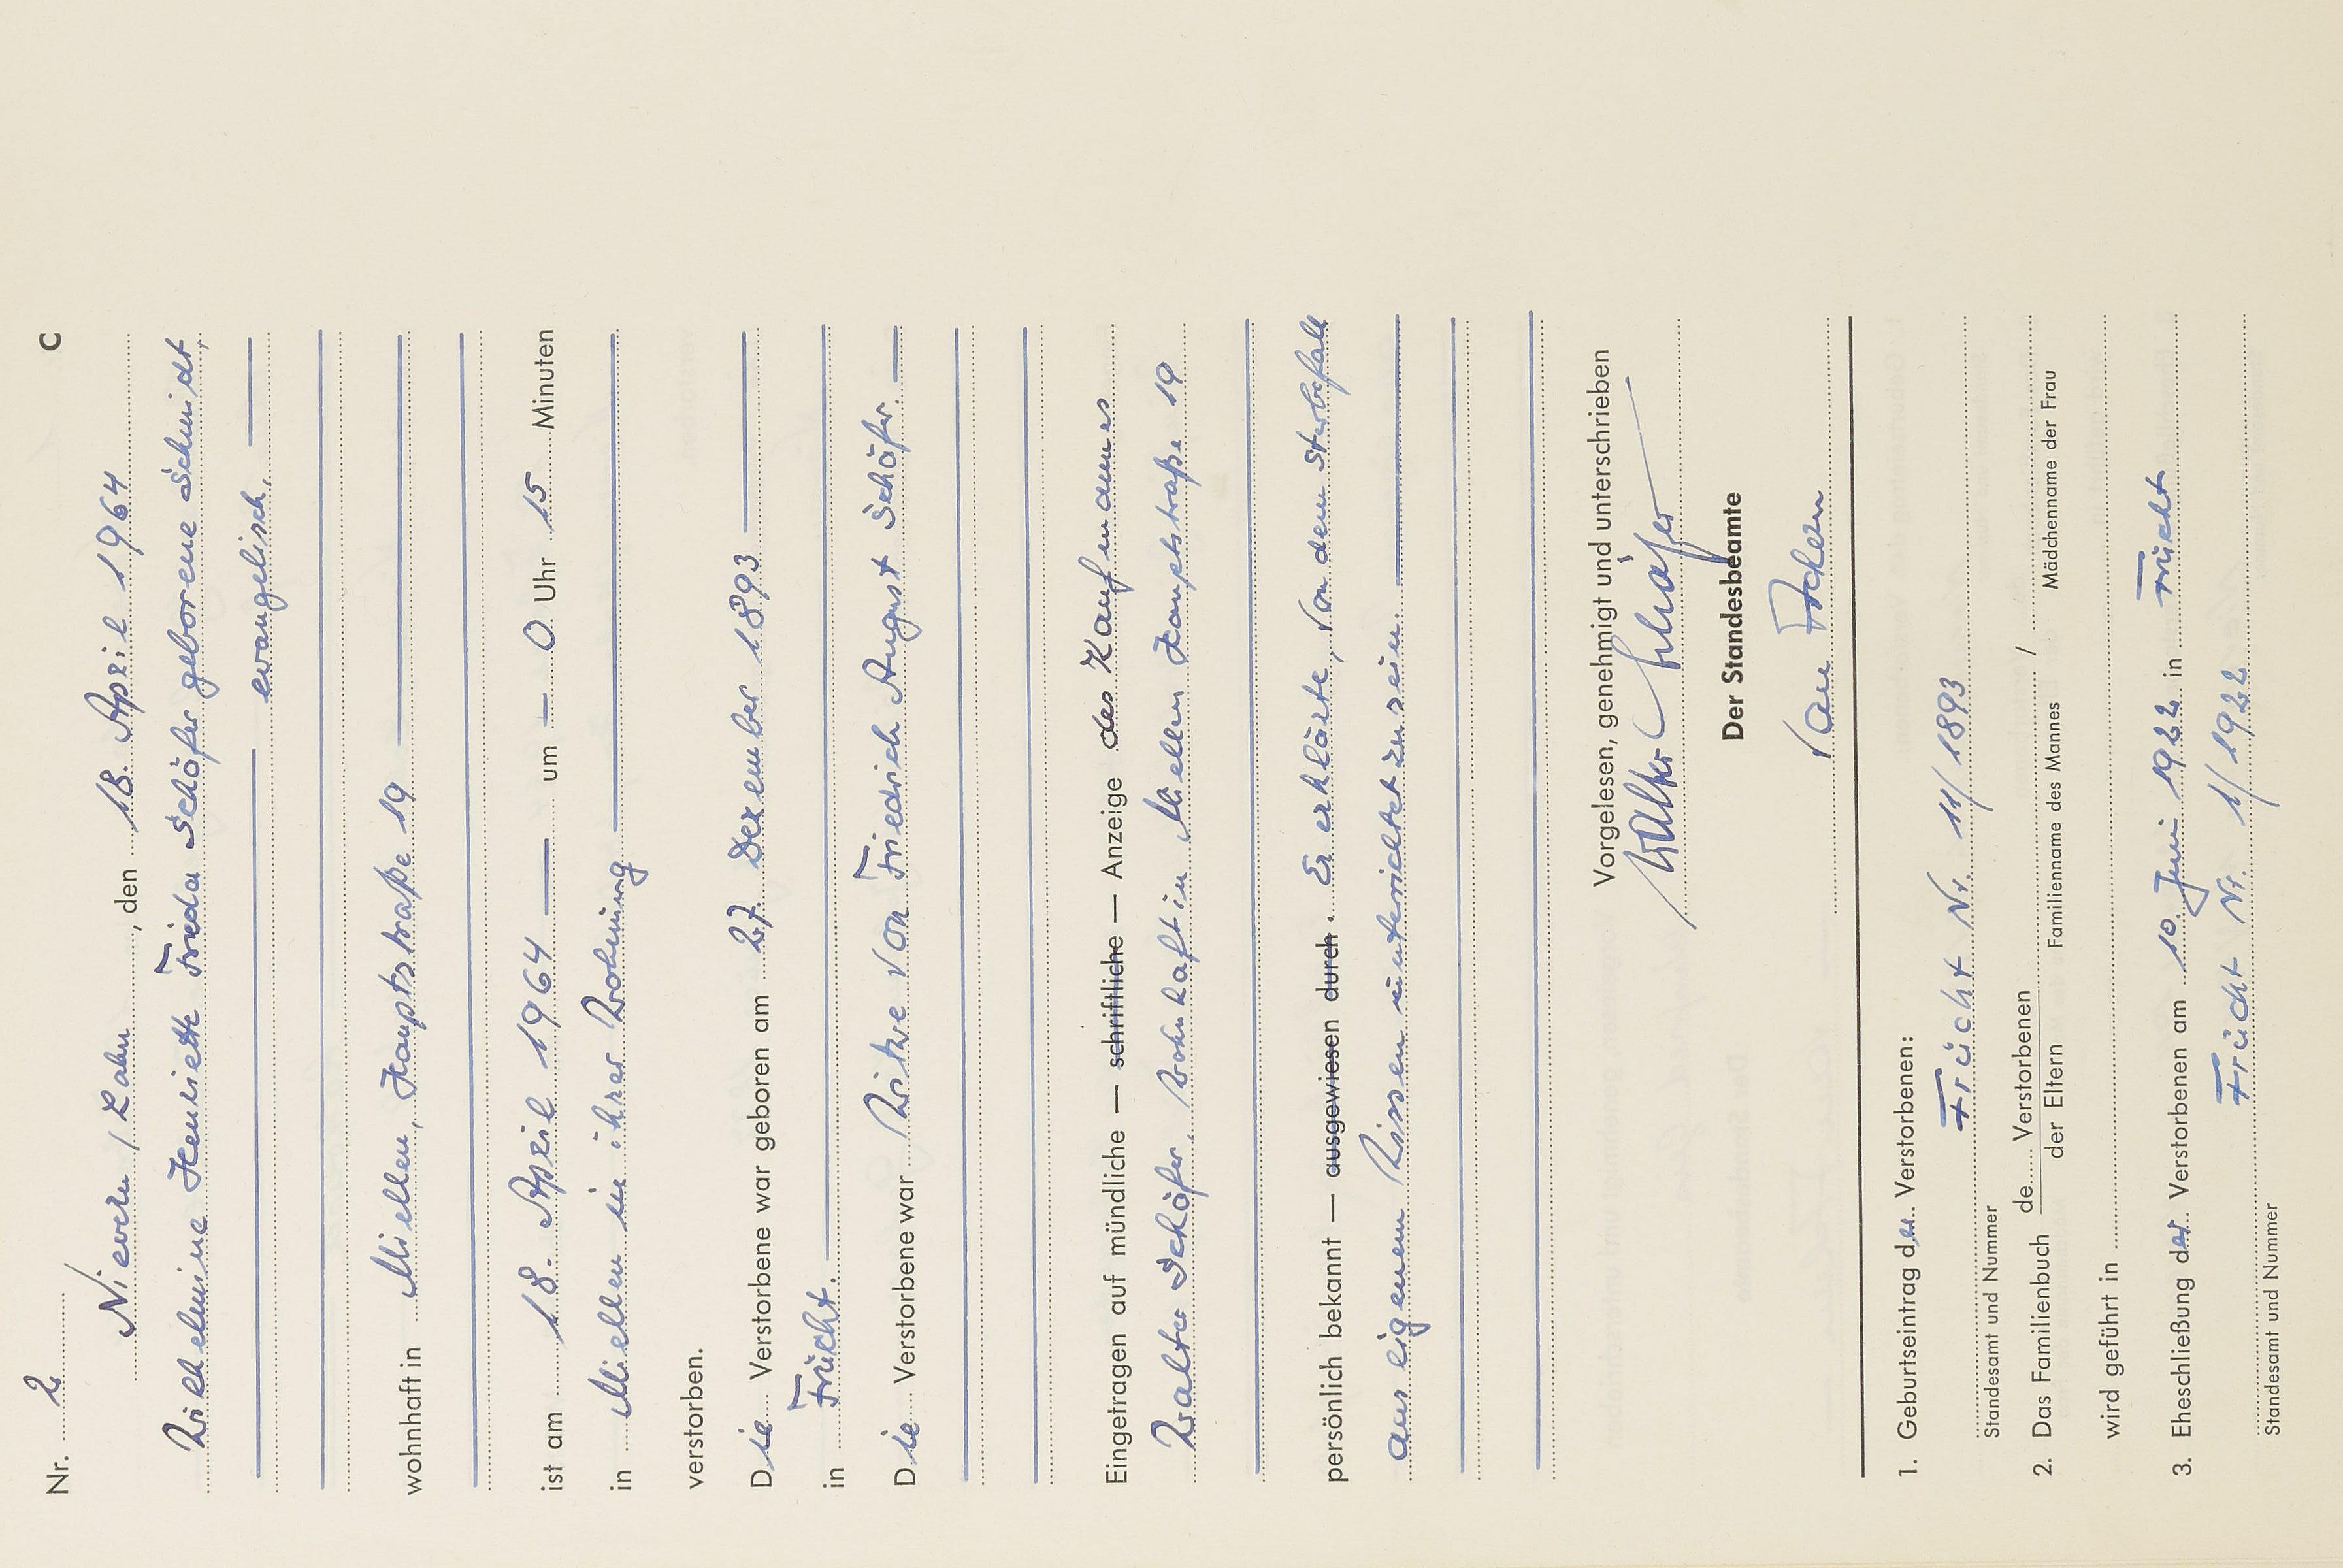 Nr. 2 C
Nievern/Lahn, den 18. April 1964
Wilhelmine Henriette Frieda Schäfer geborene Schmidt,
evangelisch,
wohnhaft in Miellen, Hauptstraße 19
ist am 18. April 1964 — um — 0 Uhr 15 Minuten
in Miellen in ihrer Wohnung
verstorben.
Die Verstorbene war geboren am 27. Dezember 1893
in Frücht.
Die Verstorbene war Witwe von Friedrich August Schäfer.
Eingetragen auf mündliche — schriftliche — Anzeige des Kaufmannes
Walter Schäfer, wohnhaft in Miellen Hauptstraße 19
persönlich bekannt — ausgewiesen durch. Er erklärte, von dem Sterbefall
aus eigenem Wissen unterrichtet zu sein.
Vorgelesen, genehmigt und unterschrieben
Walter Schäfer
Der Standesbeamte
1. Geburtseintrag der Verstorbenen:
Frücht Nr. 11/1893
Standesamt und Nummer
2. Das Familienbuch de Verstorbenen / der Eltern /
Familienname des Mannes Mädchenname der Frau
wird geführt in
3. Eheschließung der Verstorbenen am 10. Juni 1922 in Frücht
Frücht Nr. 1/1922
Standesamt und Nummer